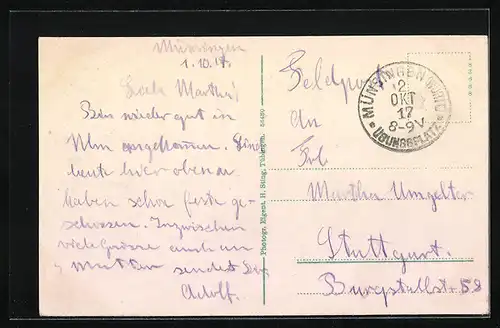 Münsingen
1.10.17.
Liebe Martha!
Bin wieder gut in
Ulm angekommen. Sind
heute hier oben u.
haben schon feste ge-
schossen. Inzwischen
viele Grüsse auch an
Mutter sendet Dir
Adolf.
Photogr. Eigent. H. Sting, Tübingen.
Feldpost
An
Frl
Martha Umgelter
Stuttgart.
Burgstallstr. 58
MÜNSINGEN (WÜRTT)
2
OKT
17
8-9V
ÜBUNGSPLATZ